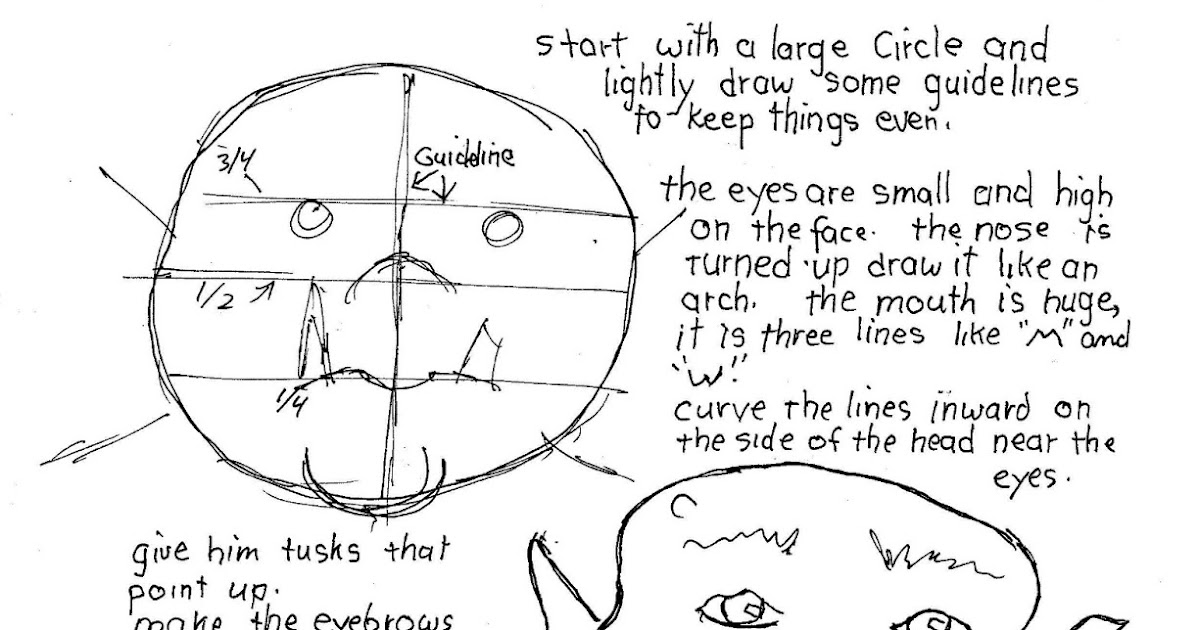 start with a large Circle and
lightly draw some guidelines
to keep things even.
3/4
Guideline
the eyes are small and high
on the face. the nose is
turned up draw it like an
arch. the mouth is huge,
it is three lines like "M" and
"w."
1/2
1/4
curve the lines inward on
the side of the head near the
eyes.
give him tusks that
point up.
make the eyebrows